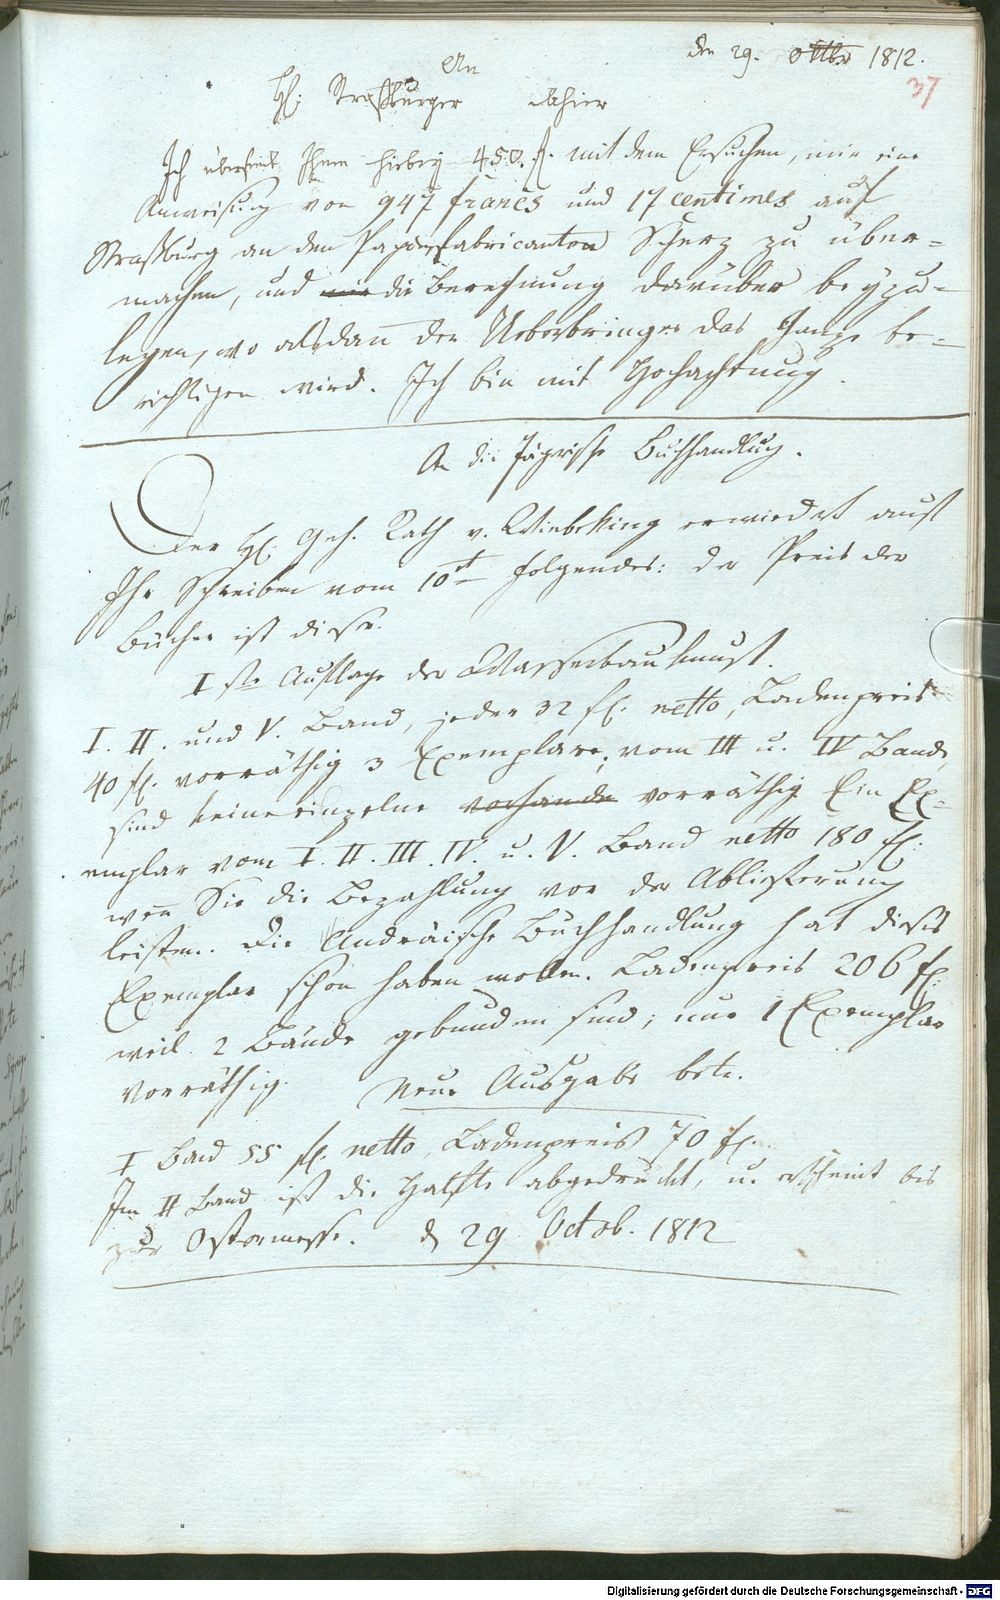 den 29. Octbr 1812.
37
An
H. Straßburger dahier
Ich übersende Ihnen hiebey 450. f. mit dem Ersuchen, mir eine
Anweisung von 947 francs und 17 centimes auf
Straßburg an den Papierfabricanten Scherz zu über=
machen, und die Berechnung darüber beyzu=
legen, wo alsdann der Ueberbringer das Ganze be=
richtigen wird. Ich bin mit Hochachtung.
An die Jägerische Buchhandlung.
Der H. Geh. Rath v. Wiebeking erwiedert auf
Ihr Schreiben vom 10t folgendes: der Preis der
Bücher ist dieser.
I ste Auflage der Wasserbaukunst.
I. II. und V. Band, jeder 32 fl. netto, Ladenpreis
40 fl. vorräthig 3 Exemplare, vom III u. IV Bande,
sind keine einzelne vorhande vorräthig Ein Ex=
emplar vom I. II. III. IV. u. V. Band netto 180 fl.
wenn Sie die Bezahlung vor der Ablieferung
leisten. Die Andräische Buchhandlung hat dieses
Exemplar schon haben wollen. Ladenpreis 206 fl.
weil 2 Bände gebunden sind; nur 1 Exemplar
vorräthig. Neue Ausgabe betr.
I Band 55 fl. netto, Ladenpreis 70 fl.
Im II Band ist die Hälfte abgedruckt, u. erscheint bis
zur Ostermesse. d 29 Octob. 1812
Digitalisierung gefördert durch die Deutsche Forschungsgemeinschaft - DFG